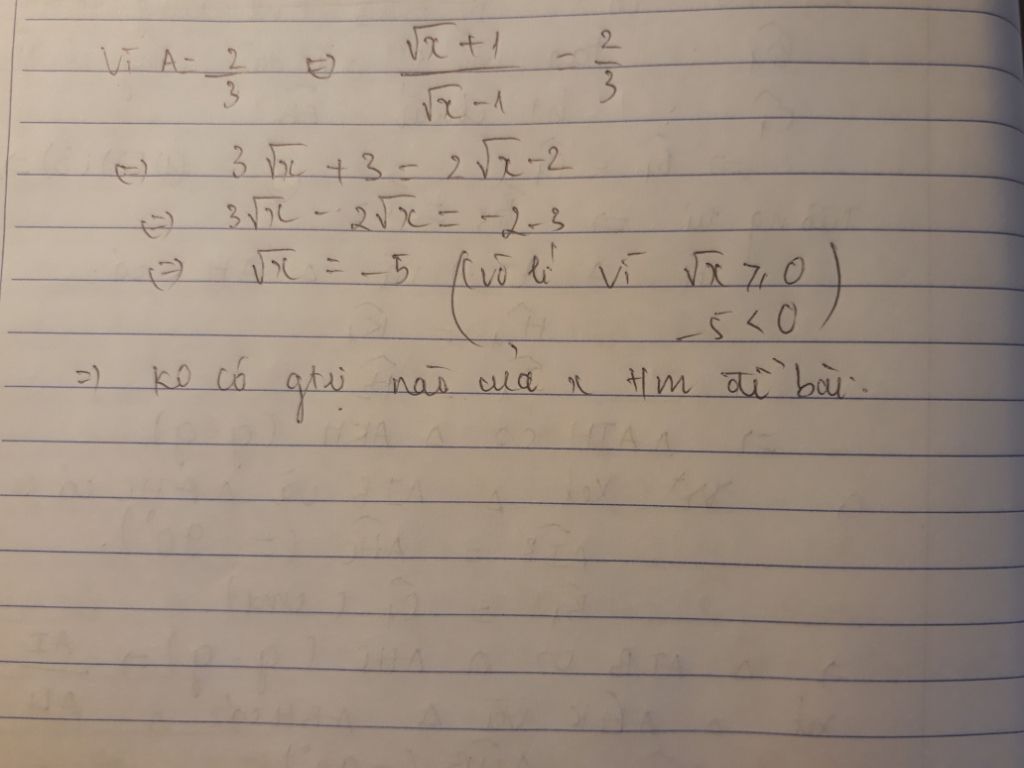 Vì A = 2/3 ⇔ (√x + 1)/(√x - 1) = 2/3
⇔ 3√x + 3 = 2√x - 2
⇔ 3√x - 2√x = -2 - 3
⇔ √x = -5 (vô lí vì √x ⩾ 0
-5 < 0)
⇒ ko có gtrị nào của x t/m đề bài.